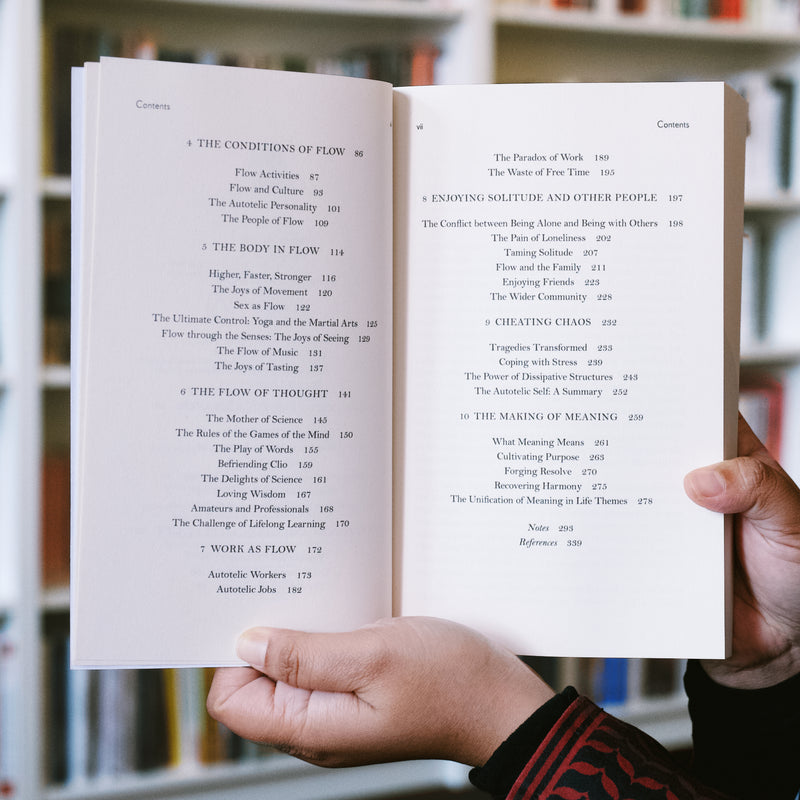 Contents
4 THE CONDITIONS OF FLOW 86
Flow Activities 87
Flow and Culture 93
The Autotelic Personality 101
The People of Flow 109
5 THE BODY IN FLOW 114
Higher, Faster, Stronger 116
The Joys of Movement 120
Sex as Flow 122
The Ultimate Control: Yoga and the Martial Arts 125
Flow through the Senses: The Joys of Seeing 129
The Flow of Music 131
The Joys of Tasting 137
6 THE FLOW OF THOUGHT 141
The Mother of Science 145
The Rules of the Games of the Mind 150
The Play of Words 155
Befriending Clio 159
The Delights of Science 161
Loving Wisdom 167
Amateurs and Professionals 168
The Challenge of Lifelong Learning 170
7 WORK AS FLOW 172
Autotelic Workers 173
Autotelic Jobs 182
vii Contents
The Paradox of Work 189
The Waste of Free Time 195
8 ENJOYING SOLITUDE AND OTHER PEOPLE 197
The Conflict between Being Alone and Being with Others 198
The Pain of Loneliness 202
Taming Solitude 207
Flow and the Family 211
Enjoying Friends 223
The Wider Community 228
9 CHEATING CHAOS 232
Tragedies Transformed 233
Coping with Stress 239
The Power of Dissipative Structures 243
The Autotelic Self: A Summary 252
10 THE MAKING OF MEANING 259
What Meaning Means 261
Cultivating Purpose 263
Forging Resolve 270
Recovering Harmony 275
The Unification of Meaning in Life Themes 278
Notes 293
References 339